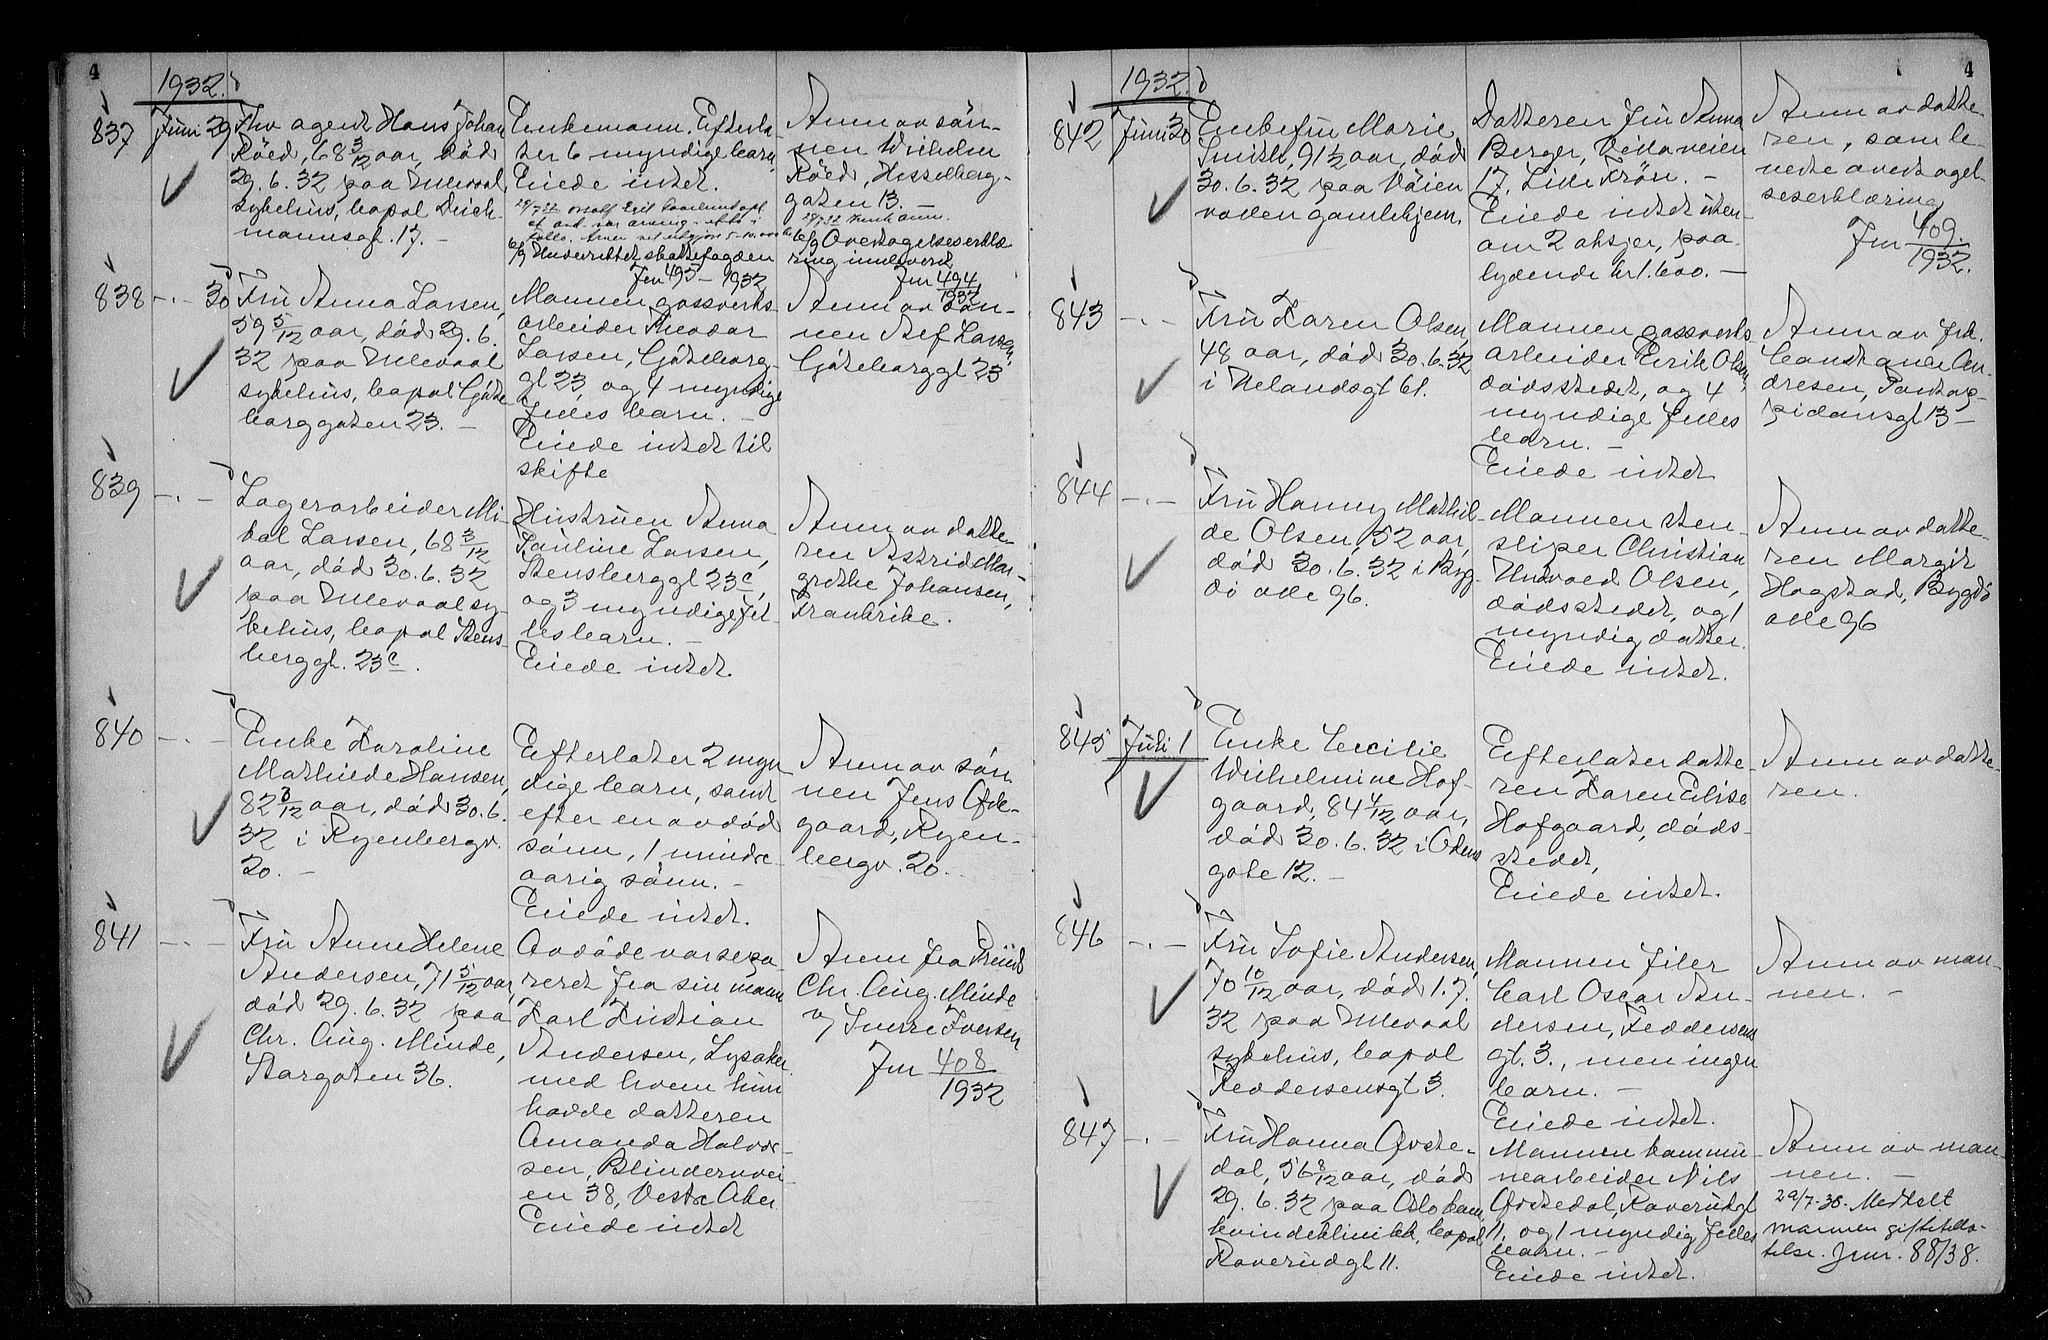 4
1932.
837
Juni 29
Fhv agent Hans Johan
Röed, 68 3/12 aar, död
29. 6. 32 paa Ullevaal
sykehus, bopel Deich-
mannsgt. 17. -
Enkemann. Efterla-
ter 6 myndige barn,
Eiede intet.
6/9 Underrettet skattefogden
Jnr 495 - 1932
Anm av søn-
nen Wilhelm
Röed, Hesselberg-
gaten 13. -
6/9 Overtagelseserklæ-
ring innlevert
Jnr 494/1932
838 -.- 30
Fru Anna Larsen,
59 5/12 aar, död 29. 6.
32 paa Ullevaal
sykehus, bopel Göte
borggaten 23. -
Mannen gassverks-
arbeider Theodor
Larsen, Göteborg-
gt 23, og 4 myndige
felles barn. -
Eiede intet til
skifte
Anm av søn-
nen Alf Larsen,
Göteborggt 23
839 -.-
Lagerarbeider Mi-
kal Larsen, 68 3/12
aar, död 30. 6. 32
paa Ullevaal sy-
kehus, bopel Stens-
berggt. 23c.
Hustruen Anna
Pauline Larsen,
Stensberggt 23c,
og 3 myndige fel-
lesbarn. -
Eiede intet.
Anm av datte-
ren Astrid Mar-
grethe Johansen,
Frankrike.
840 -.-
Enke Karoline
Mathilde Hansen,
82 3/12 aar, död 30. 6.
32 i Ryenbergv.
20. -
Efterlater 2 myn
dige barn, samt
efter en avdöd
sönn, 1 mindre
aarig sönn. -
Eiede intet.
Anm av sön
nen Jens Ofde-
gaard, Ryen-
bergv. 20.
841 -.-
Fru Anne Helene
Andersen, 71 5/12 aar,
död 29. 6. 32 paa
Chr. Aug. Minde,
Storgaten 36.
Avdöde var sepa-
reret fra sin mann
Karl Kristian
Andersen, Lysaker
med hvem hun
hadde datteren
Amanda Halvor-
sen, Blindernvei-
en 38, Vestre Aker
Eiede intet
Anm fra Prinds
Chr. Aug. Minde
v/ Sverre Iversen
Jnr 408/1932
4
1932.
842
Juni 30
Enkefru Marie
Smith, 91 1/2 aar, död
30. 6. 32 paa Vöien
volden gamlehjem.
Datteren fru Anna
Berger, Villaveien
17, Lille Frøen. -
Eiede intet uten-
om 2 aksjer, paa-
lydende kr 1.600. -
Anm av datte-
ren, som le-
verte overtagel-
seserklæring
Jnr 409./1932.
843 -.-
Fru Karen Olsen,
48 aar, död 30. 6. 32
i Uelandsgt 61.
Mannen gassverks
arbeider Erik Olsen,
dödsstedet, og 4
myndige felles
barn. -
Eiede intet
Anm av frk.
Constance An-
dresen, Pontop-
pidansgt 13 -
844 -.-
Fru Hanny Mathil-
de Olsen, 52 aar,
död 30. 6. 32 i Byg-
dö alle 96.
Mannen sten-
sliper Christian
Olsen,
dödsstedet, og 1
myndig datter.
Eiede intet.
Anm av datte-
ren Margit
Hogstad, Bygdö
alle 96
845
Juli 1
Enke Cecilie
Wilhelmine Hof-
gaard, 84 4/12 aar,
död 30. 6. 32 i Odens
gate 12. -
Efterlater datte-
ren Karen Elise
Hofgaard, döds-
stedet,
Eiede intet.
Anm av datte-
ren.
846 -.-
Fru Sofie Andersen,
70 10/12 aar, död 1. 7.
32 paa Ullevaal
sykehus, bopel
Feddersensgt 3.
Mannen filer
Carl Oscar An-
dersen, Feddersens
gt. 3., men ingen
barn. -
Eiede intet.
Anm av man-
nen. -
847 -.-
Fru Hanna Qvste-
dal, 56 8/12 aar, död
29. 6. 32 paa Oslo kom.
kvindeklinikk, bopel
Raverudgt 11.
Mannen kommu-
nearbeider Nils
Qvstedal, Raverudgt
11, og 1 myndig felles
barn. -
Eiede intet.
Anm av man-
nen. -
29/7-38. Medtelt
mannen giftetilla-
telse. Jnr. 88/38.